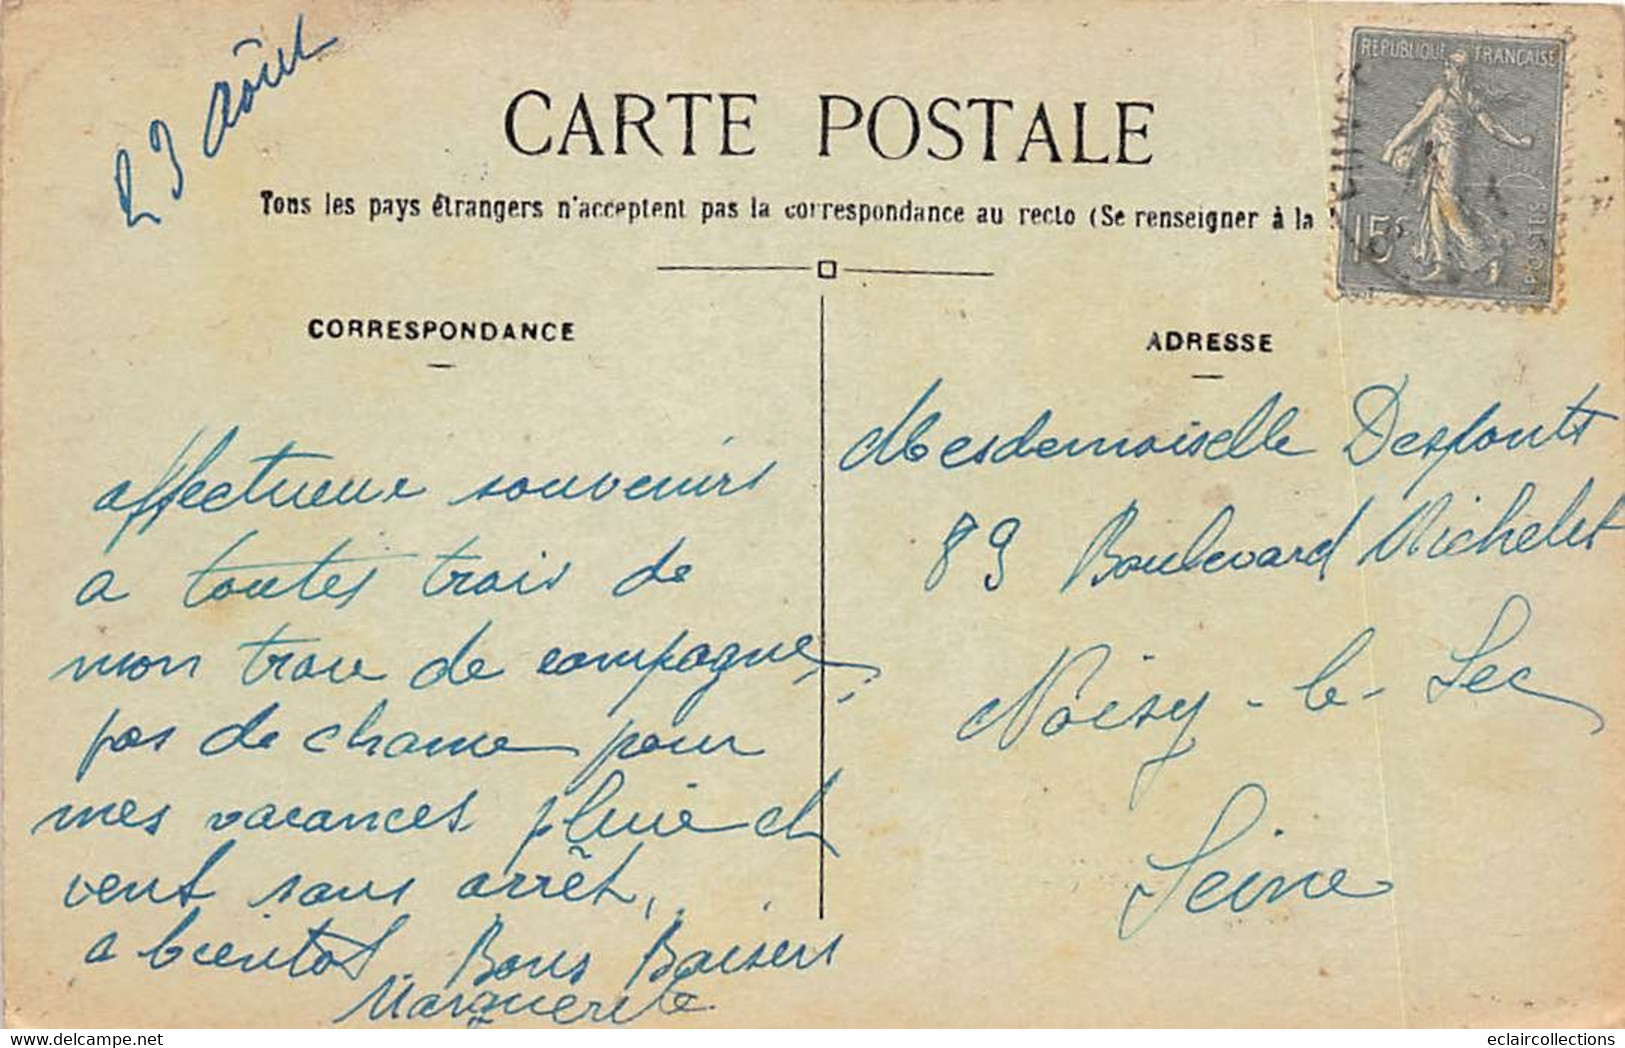 23 Août
CARTE POSTALE
Tous les pays étrangers n'acceptent pas la correspondance au recto (Se renseigner à la
RÉPUBLIQUE FRANÇAISE
15c
POSTES
CORRESPONDANCE
ADRESSE
Mesdemoiselle Desponts
89 Boulevard Michelet
Noisy-le-Sec
Seine
affectueux souvenirs
a toutes trois de
mon trou de compagne,
pas de chance pour
mes vacances pluie et
vent sans arrêt,
a bientot Bons Baisers
Marguerite
eclaircollections